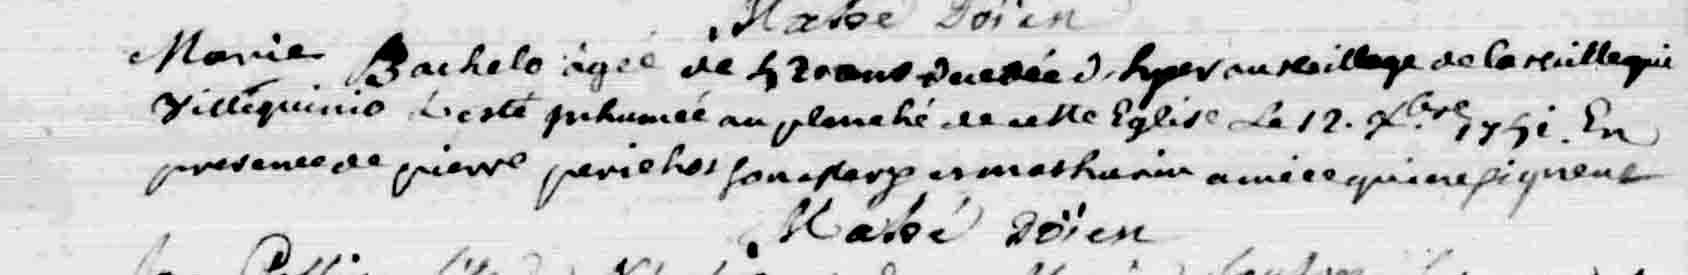 Mabé Doÿen
Marie Bachelo agée de 42 ans decedée d'hyer au village de
Villequinio a esté inhumée au planché de cette Eglise Le 12. Xbre 1751. En
presence de pierre perichot son et mathurin qui ne signent
Mabé Doÿen